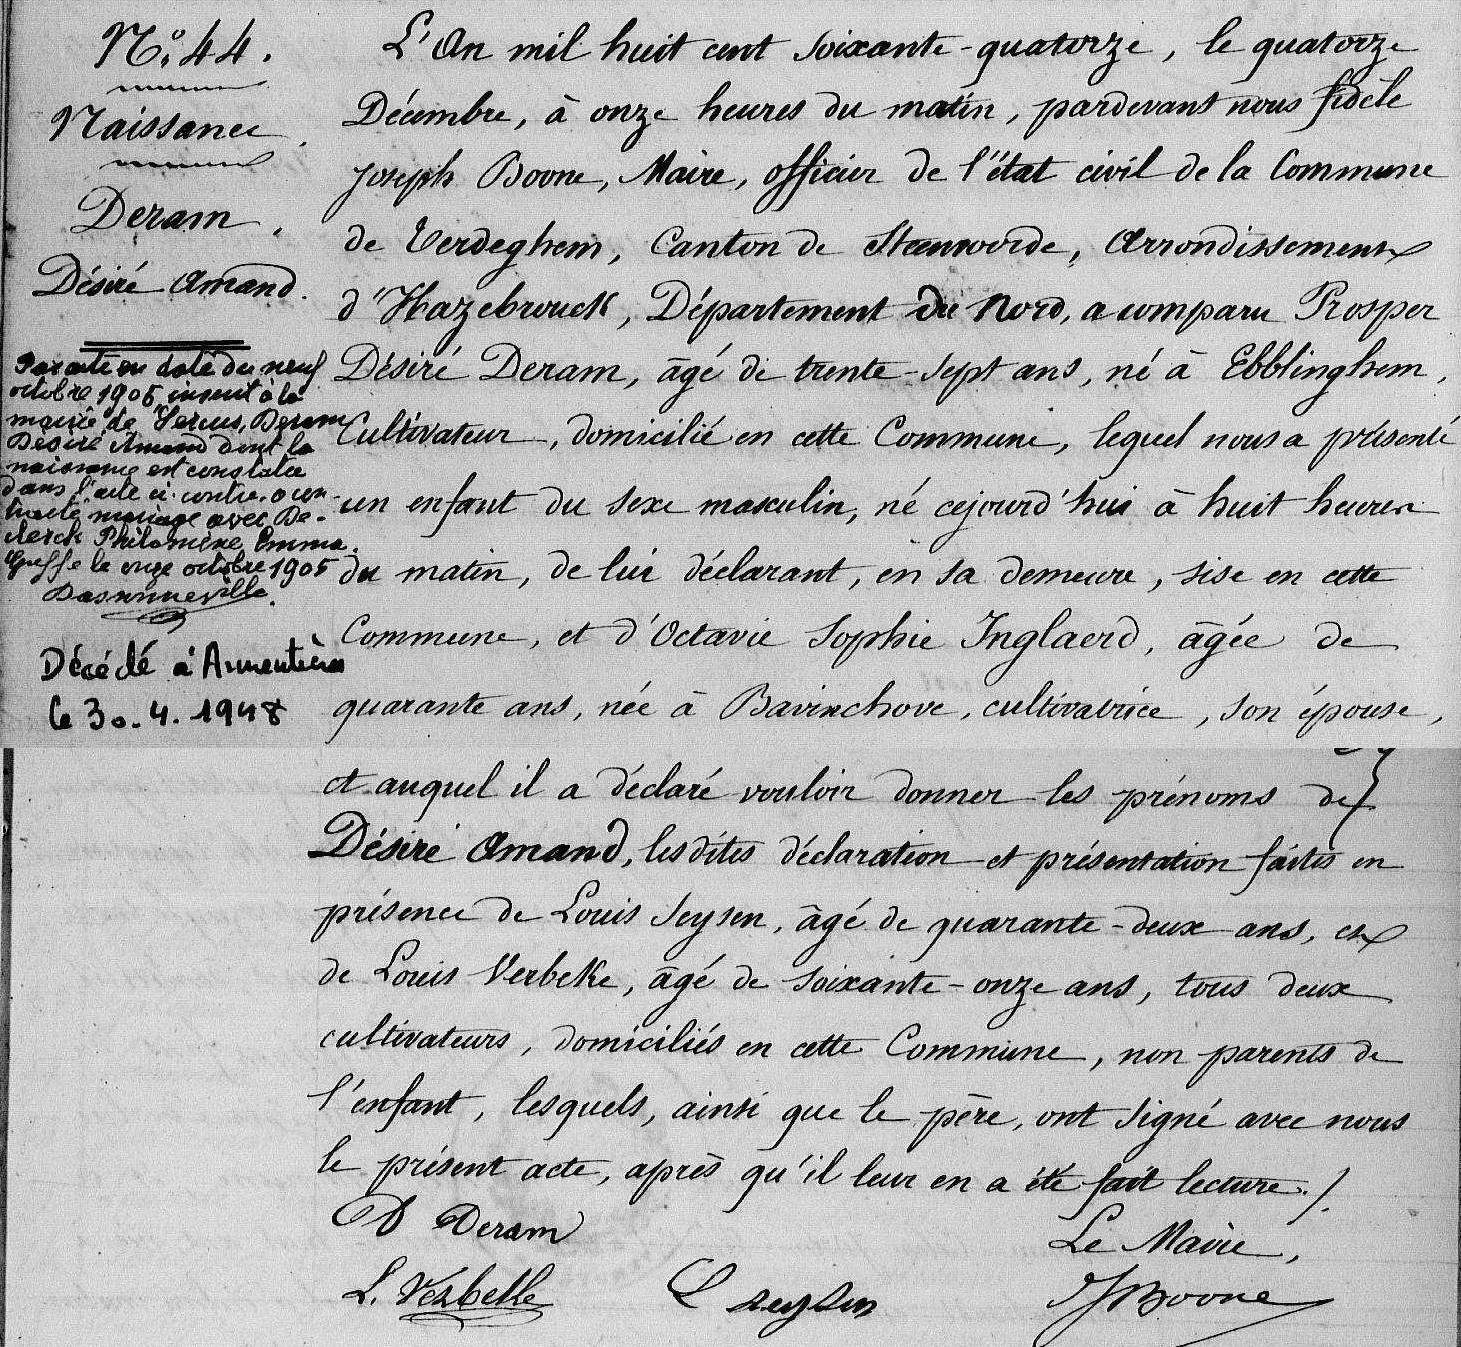 N° 44.
Naissance.
Deram.
Désiré Amand.
Par acte en date du neuf
octobre 1905 inscrit à la
mairie de Deram
Désiré Amand dont la
naissance est constatée
dans l'acte ci-contre a con-
tracté mariage avec De-
clerck Philomène Emma.
Greffe le onze octobre 1905
Décédé à Armentières
le 30.4.1948
L'An mil huit cent soixante-quatorze, le quatorze
Décembre, à onze heures du matin, pardevant nous fidèle
Joseph Boone, Maire, officier de l'état civil de la Commune
de Terdeghem, Canton de Steenvoorde, Arrondissement
d'Hazebrouck, Département du Nord, a comparu Prosper
Désiré Deram, âgé de trente-sept ans, né à Ebblinghem,
Cultivateur, domicilié en cette Commune, lequel nous a présenté
un enfant du sexe masculin, né cejourd'hui à huit heures
du matin, de lui déclarant, en sa demeure, sise en cette
Commune, et d'Octavie Sophie Inglaerd, âgée de
quarante ans, née à Bavinchove, cultivatrice, son épouse,
et auquel il a déclaré vouloir donner les prénoms de
Désiré Amand, lesdites déclaration et présentation faites en
présence de Louis Seysen, âgé de quarante-deux ans, et
de Louis Verbeke, âgé de soixante-onze ans, tous deux
cultivateurs, domiciliés en cette Commune, non parents de
l'enfant, lesquels, ainsi que le père, ont signé avec nous
le présent acte, après qu'il leur en a été fait lecture./.
D Deram
Le Maire,
L. Verbeke L Seysen JBoone